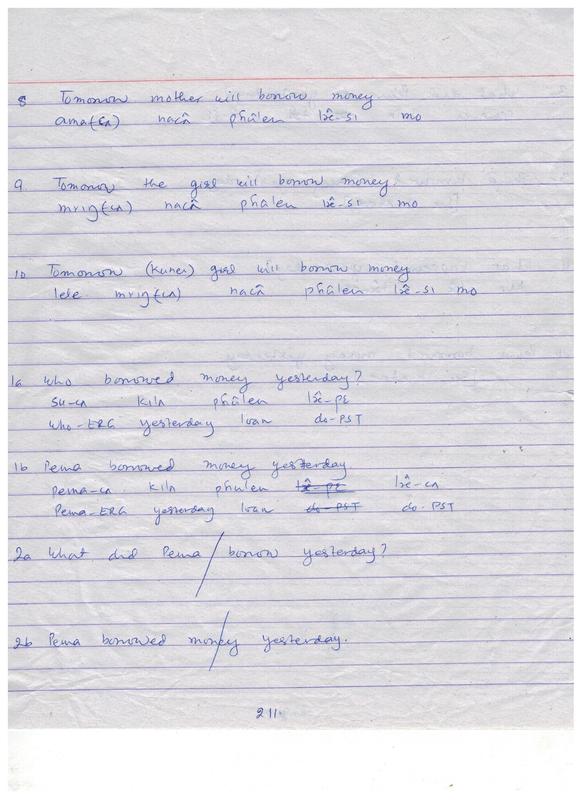 8 Tomorrow mother will borrow money
ama(ca) nacâ phâlen lx̂-si mo
9 Tomorrow the girl will borrow money.
mrig(ca) nacâ phâlen lx̂-si mo
10 Tomorrow (Kunei) girl will borrow money
lele mrig(ca) nacâ phâlen lx̂-si mo
1a Who borrowed money yesterday?
su-ca kila phâlen lx̂-pɛ
who-ERG yesterday loan do-PST
1b Pema borrowed money yesterday.
pema-ca kila phulen lx̂-pɛ lx̂-ca
Pema-ERG yesterday loan do-PST do-PST
2a What did Pema / borrow yesterday?
2b Pema borrowed money yesterday.
211